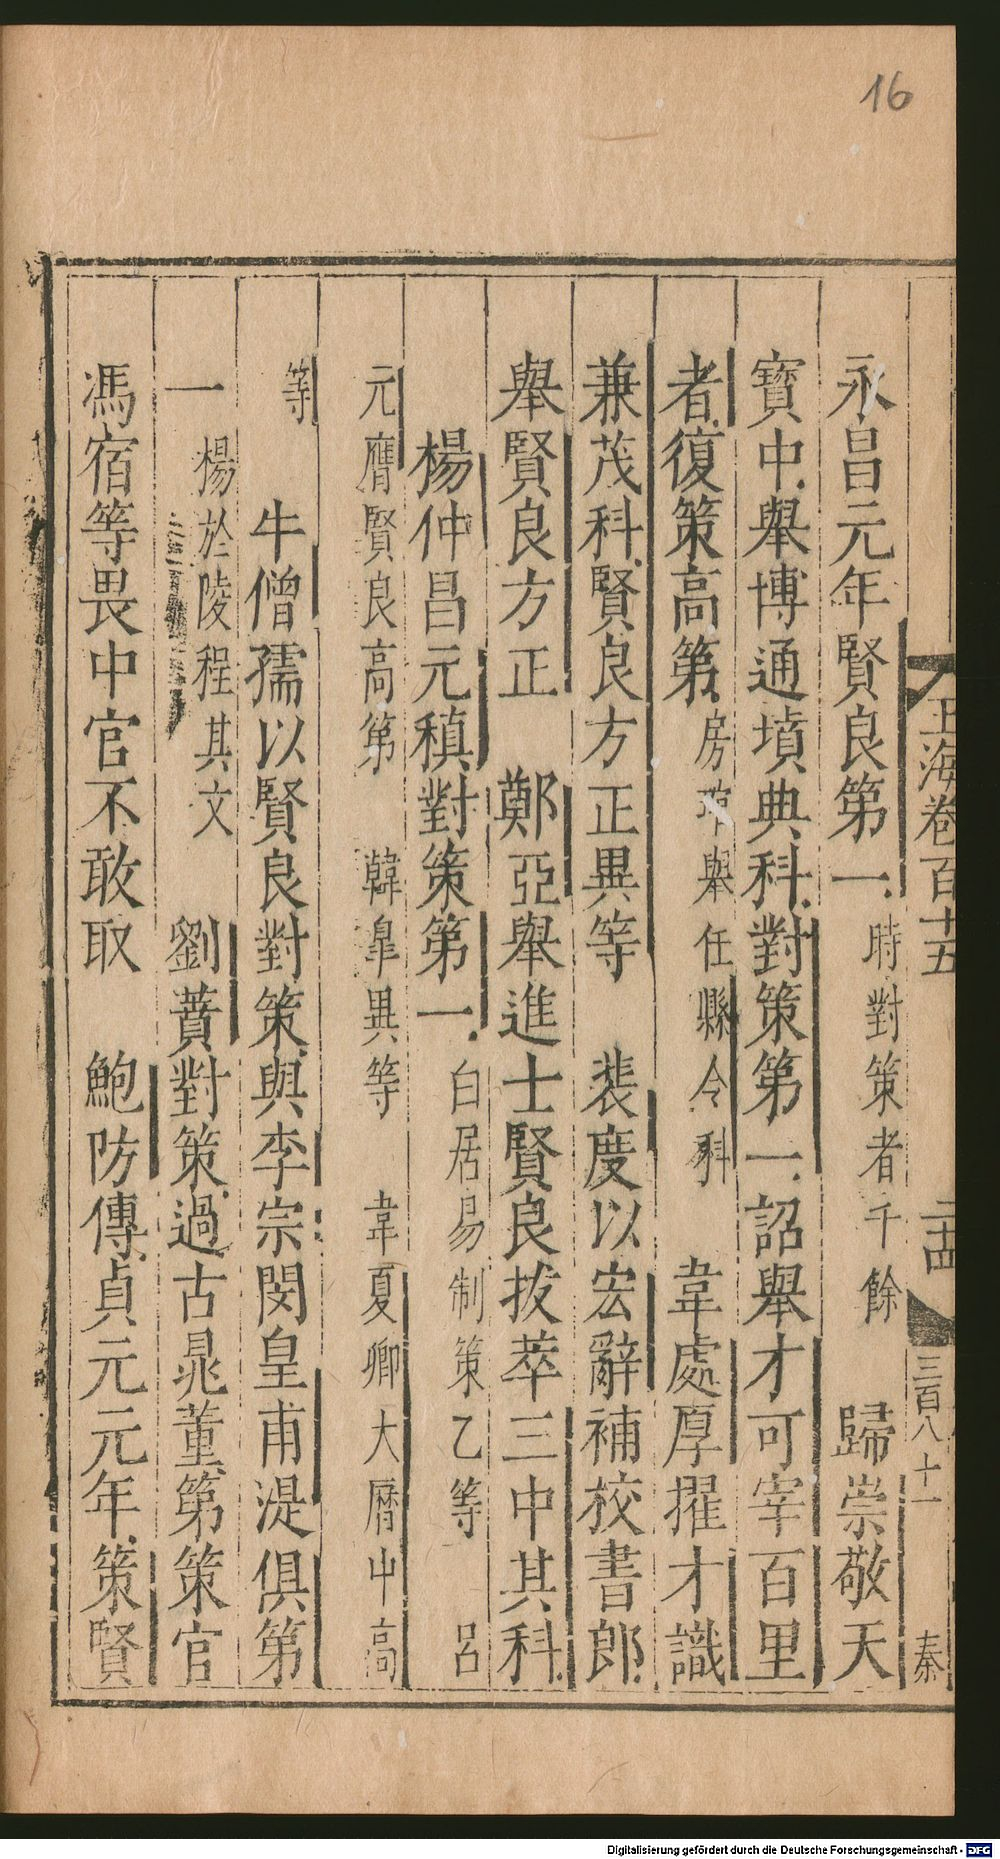 16
玉海卷百十五　二十四　三百八十一　秦
永昌元年賢良第一時對策者千餘　歸崇敬天
寳中舉博通墳典科對策第一詔舉才可宰百里
者復策高第房琯舉任縣令科　韋處厚擢才識
兼茂科賢良方正異等　裴度以宏辭補校書郎
舉賢良方正　鄭亞舉進士賢良拔萃三中其科
楊仲昌元稹對策第一白居易制策乙等　呂
元膺賢良高第　韓臯異等　韋夏卿大曆中高
等　牛僧孺以賢良對策與李宗閔皇甫湜俱第
一楊於陵程其文　劉蕡對策過古晁董第策官
馮宿等畏中官不敢取　鮑防傳貞元元年策賢
Digitalisierung gefördert durch die Deutsche Forschungsgemeinschaft - DFG